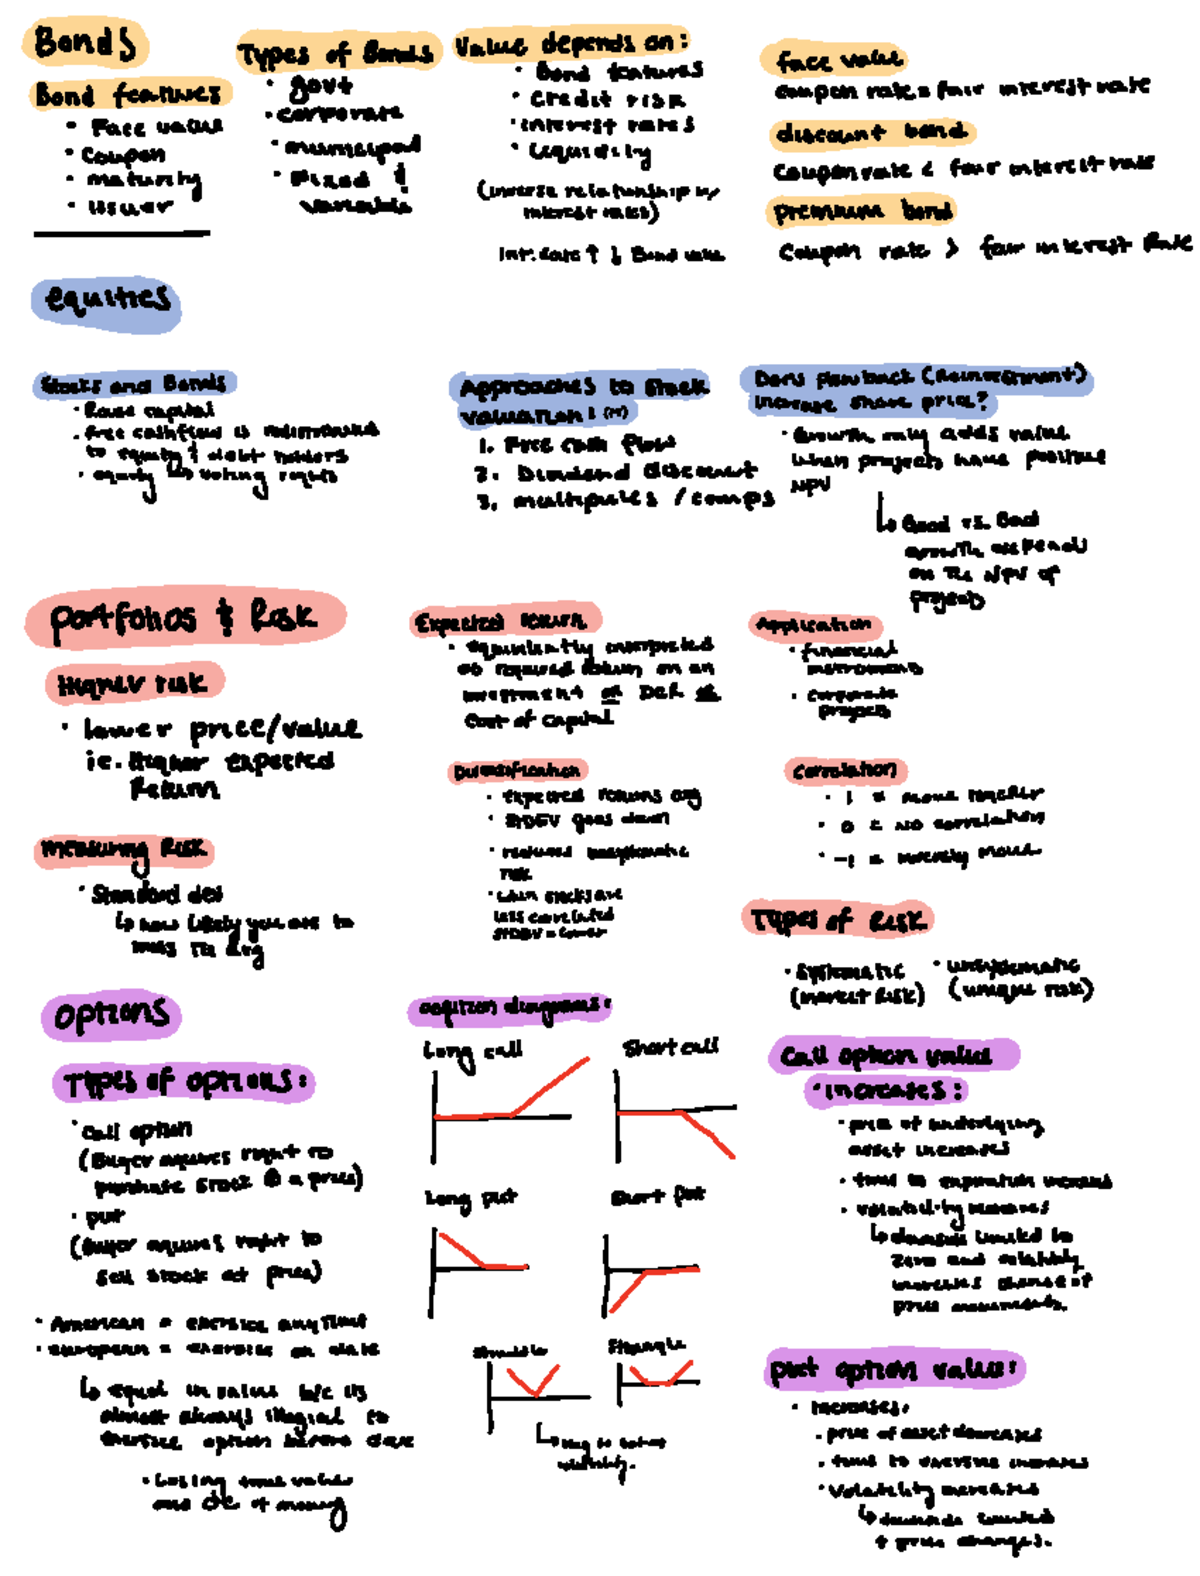 Bonds
Bond features
• Face value
• Coupon
• maturity
• issuer
Types of Bonds
• govt
• corporate
• municipal
• Fixed &
variable
Value depends on:
• Bond features
• credit risk
• interest rates
• Liquidity
(inverse relationship w/
interest rates)
Int. rate ↑ ↓ Bond value
face value
coupon rate = fair interest rate
discount bond
coupon rate < fair interest rate
premium bond
Coupon rate > fair interest Rate
equities
Stocks and Bonds
• Raise capital
• free cashflow is
to equity & debt holders
• equity voting rights
Approaches to Stock
valuation: (PV)
1. Free cash flow
2. Dividend discount
3. multiples / comps
Does plowback (Reinvestment)
increase share price?
• Growth only adds value
when projects have positive
NPV
↳ Good vs. Bad
growth depends
on the NPV of
projects
Portfolios & Risk
Higher risk
• lower price/value
ie. Higher expected
Return
measuring Risk
• Standard dev
↳ how likely you are to
miss the avg
Expected return
• equivalently interpreted
as required return on an
investment or DCR or
Cost of capital
Diversification
• expected returns avg
• STDEV goes down
• reduces unsystematic
risk
• when stocks are
less correlated
STDEV = lower
Application
• financial
instruments
• corporate
projects
Correlation
• 1 = move together
• 0 = no correlation
• -1 = inversely move
Types of Risk
• systematic
(market risk)
• unsystematic
(unique risk)
options
Types of options:
• call option
(Buyer aquires right to
purchase stock @ a price)
• put
(Buyer aquires right to
sell stock at price)
• American = exercise anytime
• european = exercise on date
↳ equal in value b/c its
almost always illogical to
exercise option before date
• Losing time value
of money
position diagrams:
Long call
Short call
Long put
Short put
Straddle
Strangle
volatility.
Call option value
• increases:
• price of underlying
asset increases
• time to expiration increases
• volatility increases
↳ downside limited to
zero and volatility
increases chance of
price movements.
put option value:
• increases:
• price of asset decreases
• time to exercise increases
• volatility increases
↳ downside limited
+ price changes.